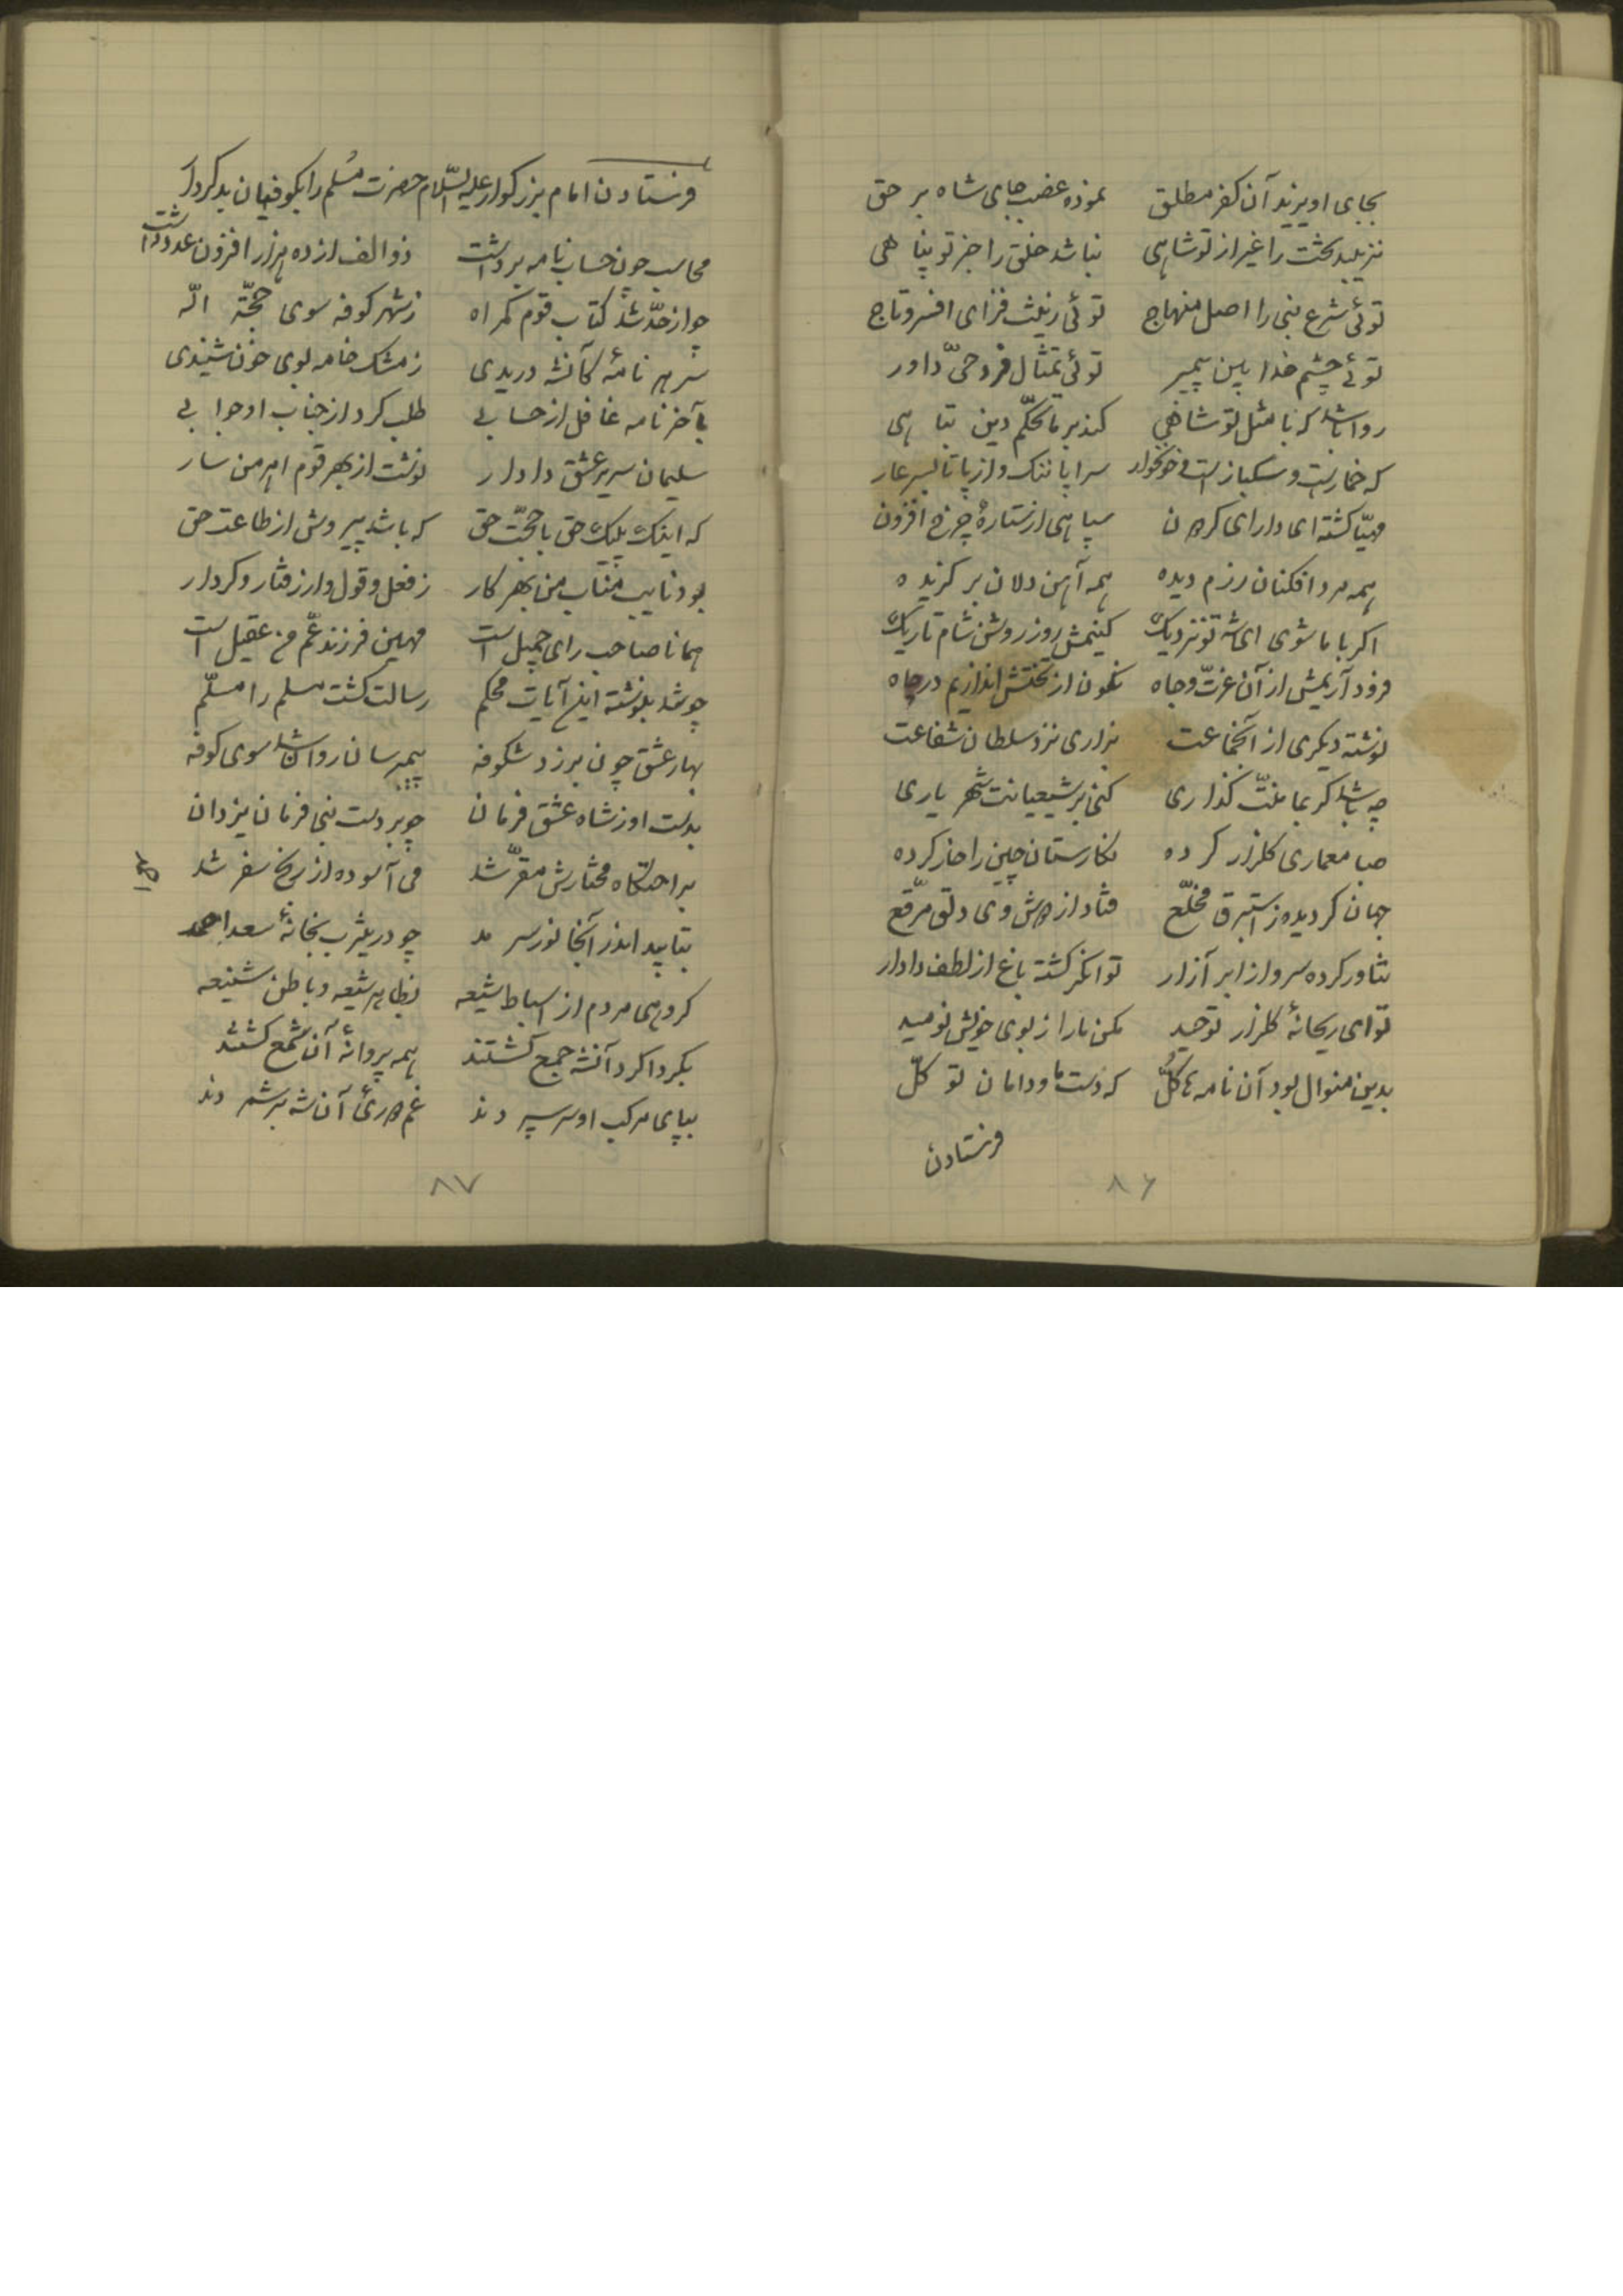 بجای او یزید آن کفر مطلق نموده غضب جای شاه بر حق
نزیبد تخت را غیر از تو شاهی نباشد خلق را جز تو پناهی
توئی شرع نبی را اصل منهاج توئی زینت فزای افسر و تاج
توئی چشم خدا بین پیمبر توئی تمثال فرد حیّ داور
روا باشد که با مثل تو شاهی کند بر ما تحکّم دین تباهی
که خمار است و سگباز است و خونخوار سراپا ننک و از پا تا بسر عار
مهیّا کشته ای دارای سپاهی از ستارهٔ چرخ افزون
همه مرد افکنان رزم دیده همه آهن دلان بر کزیده
اکر با ما شوی ای شه تو نزدیک کنیمش روز روشن شام تاریک
فرود آریمش از آن عزّت و جاه نکون از تختش اندازیم در چاه
نوشته دیکری از آنجماعت بزاری نزد سلطان شفاعت
چه باشد کر بما منّت کذاری کنی بر شیعیانت شهر یاری
صبا معماری کلزار کرده نکارستان چین را خار کرده
جهان کردیده ز استبرق مخلّع فتاد از دوش وی دلق مرقّع
نثاور کرده سر و از ابر آزار توانکر کشته باغ از لطف دادار
تو ای ریحانهٔ کلزار توحید مکن ما را ز بوی خویش نومید
بدین منوال بود آن نامه ها کلّ که دست ما و دامان تو کلّ
فرستادن
۸۶
فرستادن امام بزرکوار علیه السّلام حضرت مُسلم را بکوفیان بد کردار
محاسب چون حساب نامه برداشت ذو الف از ده هزار افزون عدد داشت
چو از حدّ شد کتاب قوم کمراه ز شهر کوفه سوی حجّة الّه
سر هر نامهٔ کآنشه دریدی ز مشک خامه بوی خون شنیدی
بآخر نامه غافل از حسابی طلب کرد از جناب او جوابی
سلیمان سریر عشق دادار نوشت از بهر قوم اهرمن سار
که اینک پیک حق با حجّت حق که باشد پیرویش از طاعت حق
بود نایب مناب من بهر کار ز فعل و قول و از رفتار و کردار
همانا صاحب رای جمیل است مهین فرزند عمّ من عقیل است
چو شد بنوشته این آیات محکم رسالت کشت مسلم را مسلّم
بهار عشق چون بر زد شکوفه پیمبر سان روان شد سوی کوفه
بدست او ز شاه عشق فرمان چو بر دست نبی فرمان یزدان
براحتکاه مختارش مقرّ شد می آسوده از رنج سفر شد
بتابید اندر آنجا نور سرمد چو در یثرب بخانهٔ سعد احمد
کروهی مردم از اسباط شیعه بظاهر شیعه و باطن شنیعه
بکردا کرد آنشه جمع کشتند همه پروانهٔ آن شمع کشتند
بپای مرکب او سر سپردند غم آن شه بر شمردند
۸۷